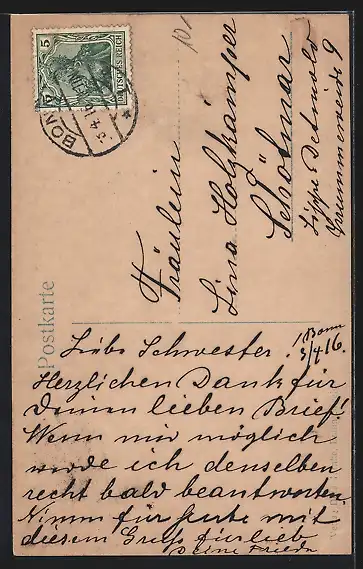 Postkarte
5 5
DEUTSCHES REICH
BONN
3.4.16
Fräulein
Lina Holzkämper
Schötmar
Lippe Detmold
Krummeweide 9
Bonn
3/4 16.
Liebe Schwester!
Herzlichen Dank für
Deinen lieben Brief!
Wenn mir möglich
werde ich denselben
recht bald beantworten.
Nimm für heute mit
diesem Gruß fürlieb
Deine Frieda